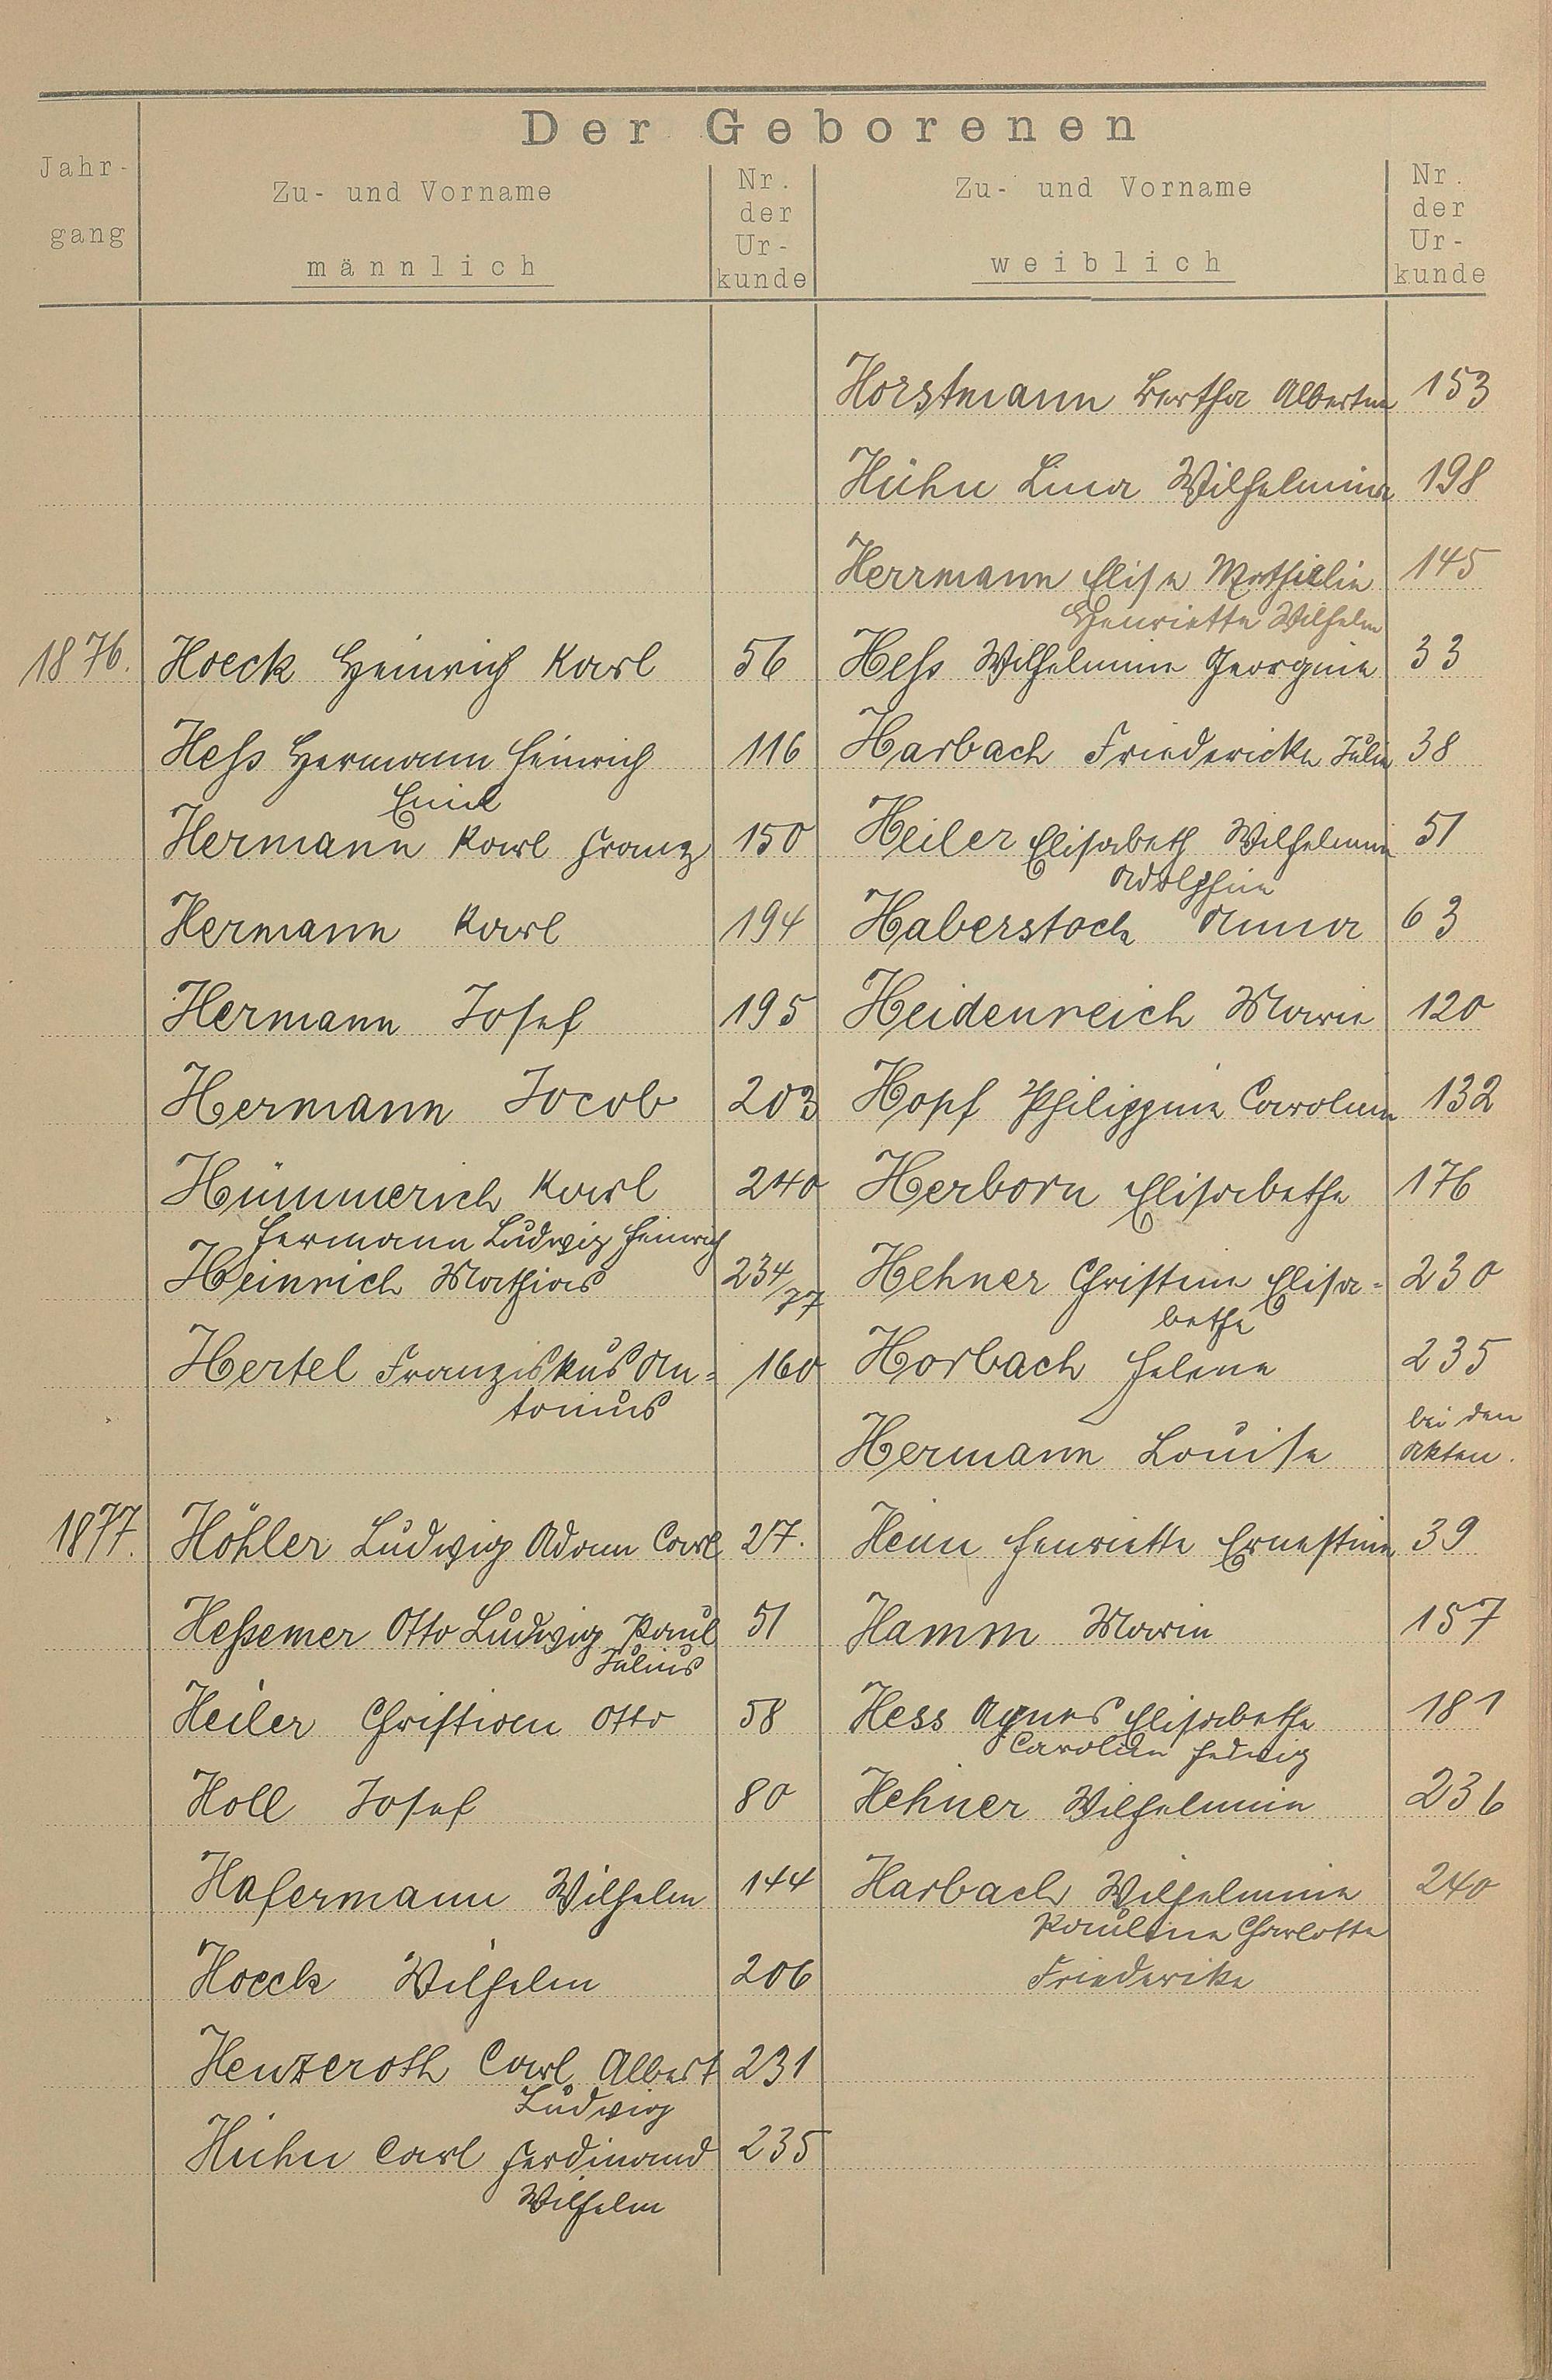 Der Geborenen
Jahr-
gang
Zu- und Vorname
männlich
Nr.
der
Ur-
kunde
Zu- und Vorname
weiblich
Nr.
der
Ur-
kunde
Horstmann Bertha Albertine 153
Hühn Lina Wilhelmine 198
Herrmann Elise Mathilin 145
1876. Hoeck Heinrich Karl 56
Henriette Wilhelm
Heß Wilhelmine Georgine 33
Heß Hermann Heinrich 116 Harbach Friedericke Julie 38
Emil
Hermann Karl Franz 150 Heiler Elisabeth Wilhelmine 51
Adolphine
Hermann Karl 194 Haberstock Anna 63
Hermann Josef 195 Heidenreich Marie 120
Hermann Jacob 203 Hopf Philippine Caroline 132
Hümmerich Karl 240 Herborn Elisabethe 176
Hermann Ludwig Heinrich
Heinrich Mathias 234/77 Hehner Christine Elisa-
bethe 230
Hertel Franziskus An- 160 Horbach Helene 235
tonius
Hermann Louise bei den
Akten.
1877. Höhler Ludwig Adam Carl 27. Henn Henriette Ernestine 39
Heßemer Otto Ludwig Paul 51 Hamm Marie 157
Julius
Heiler Christian Otto 58 Hess Agnes Elisabethe 181
Carolin Hedwig
Holl Josef 80 Hehner Wilhelmine 236
Hafermann Wilhelm 144 Harbach Wilhelmine 240
Pauline Charlotte
Hoeck Wilhelm 206 Friederike
Henzeroth Carl Albert 231
Ludwig
Hühn Carl Ferdinand 235
Wilhelm